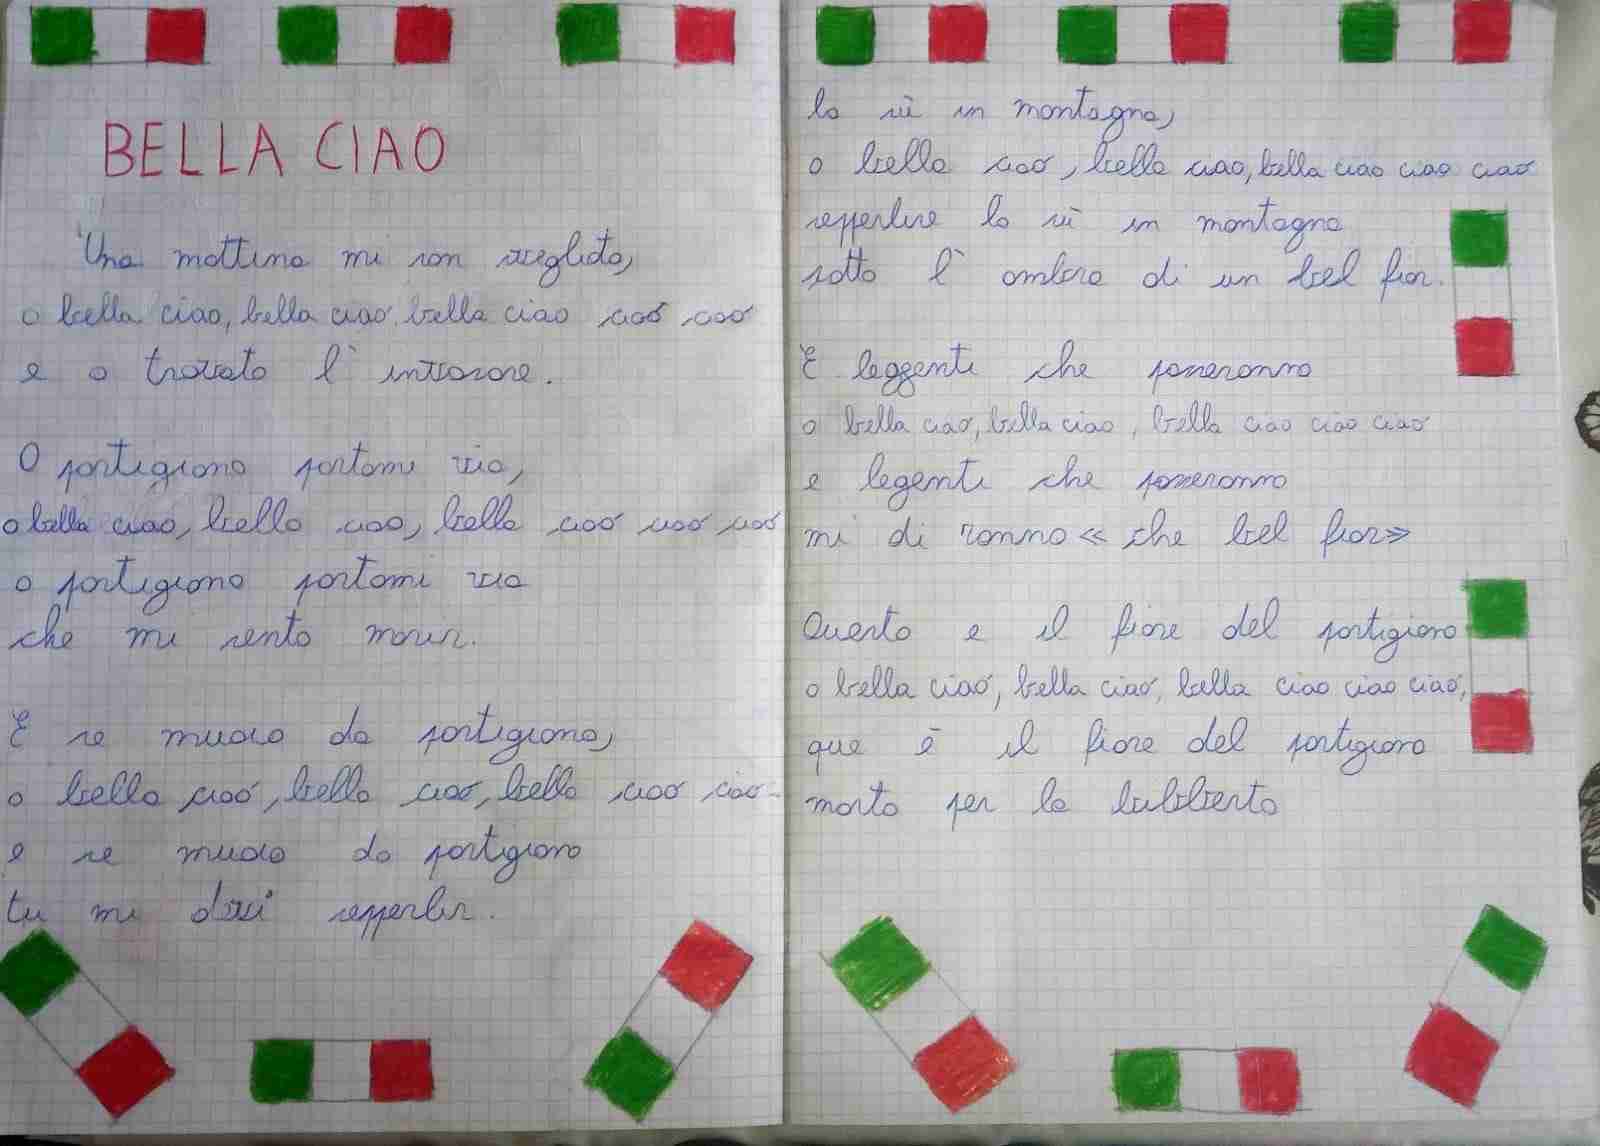 BELLA CIAO
Una mattina mi son svegliato,
o bella ciao, bella ciao, bella ciao ciao ciao
e o trovato l'invasore.
O partigiano portami via,
o bella ciao, bella ciao, bella ciao ciao ciao
o partigiano portami via
che mi sento morir.
E se muoio da partigiano,
o bella ciao, bella ciao, bella ciao ciao
e se muoio da partigiano
tu mi devi seppelir.
la sù in montagna,
o bella ciao, bella ciao, bella ciao ciao ciao
seppellire la sù in montagna
sotto l'ombra di un bel fior.
E leggenti che passeranno
o bella ciao, bella ciao, bella ciao ciao ciao
e legenti che passeranno
mi di ranno « che bel fior»
Questo e il fiore del partigiano
o bella ciao, bella ciao, bella ciao ciao ciao,
que è il fiore del partigiano
morto per la